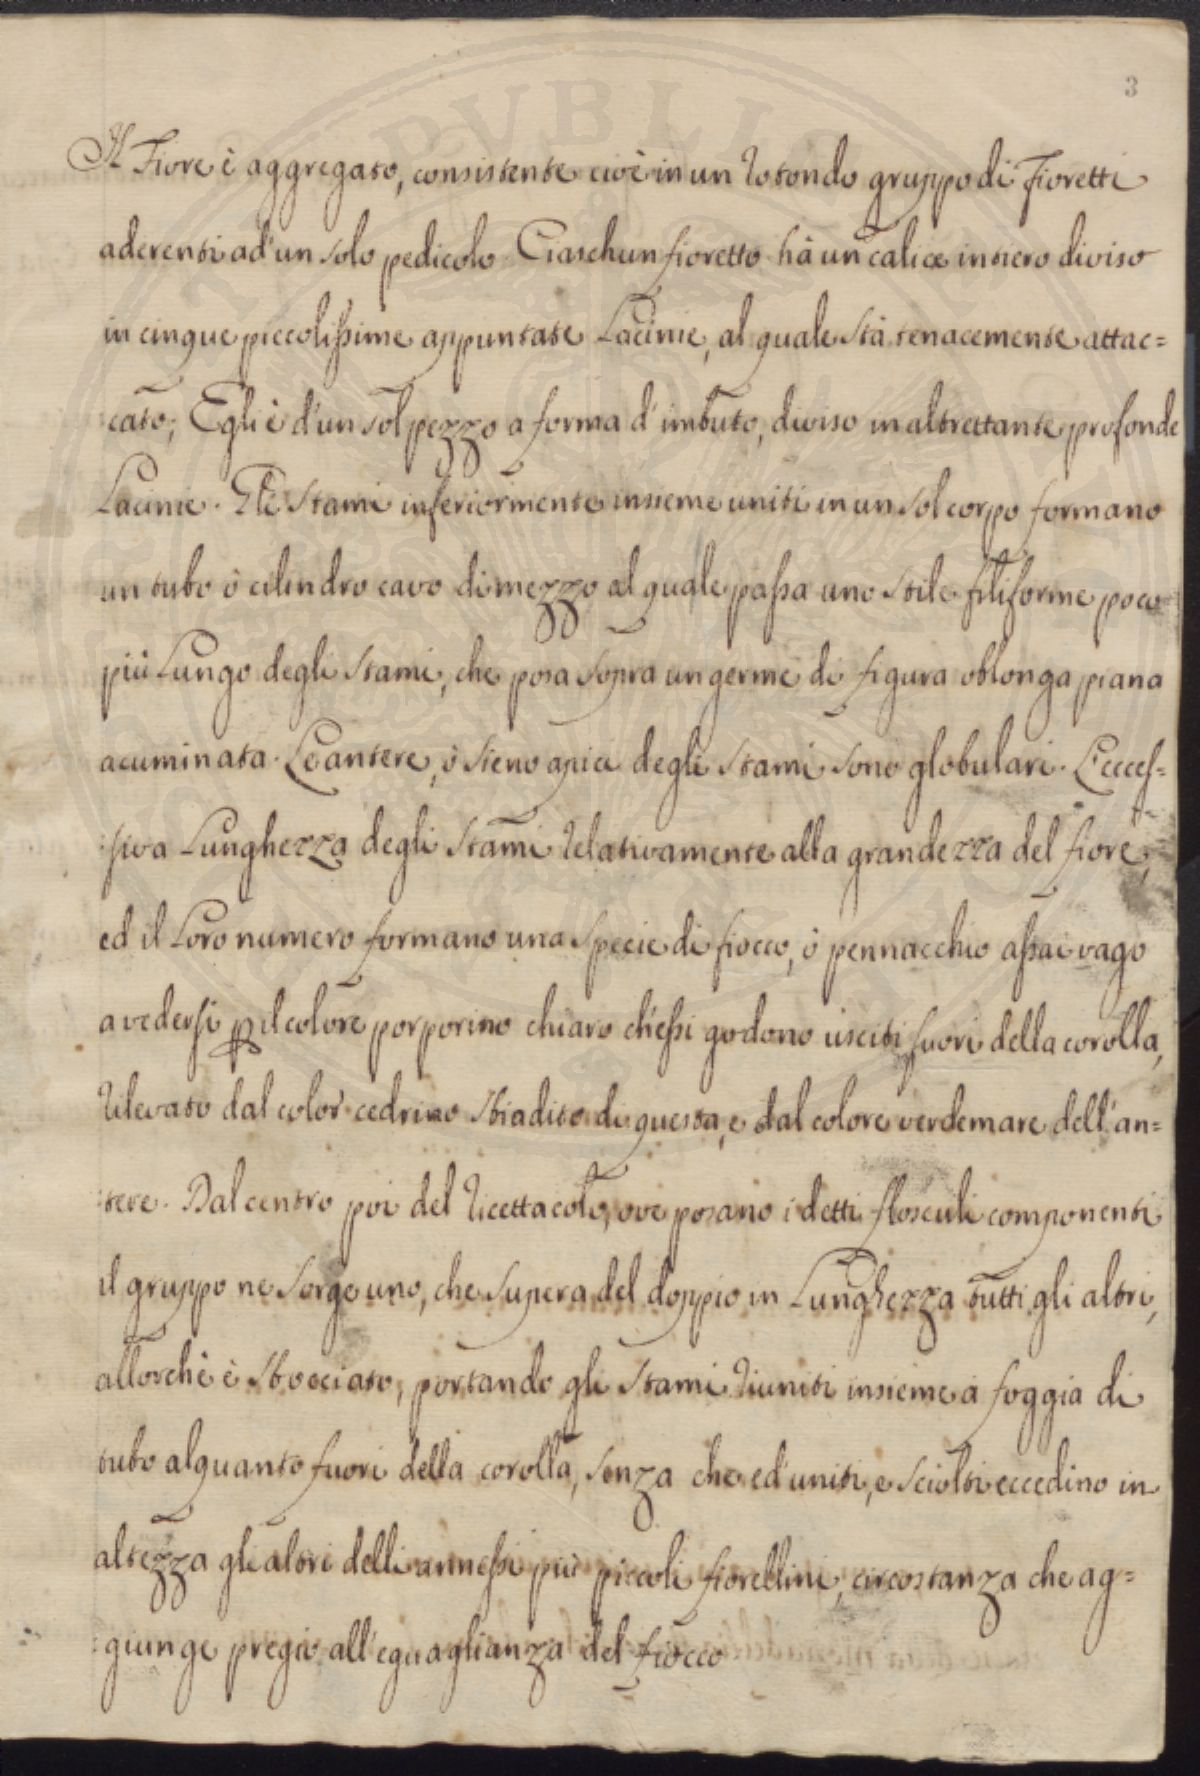 3
Il Fiore è aggregato, consistente cioè in un rotondo gruppo di Fioretti
aderenti ad'un solo pedicolo. Ciaschun fioretto hà un calice intiero diviso
in cinque piccolissime appuntate Lacinie, al quale stà tenacemente attac=
:cato; Egli è d'un sol pezzo a forma d'imbuto, diviso in altrettante profonde
Lacinie. Gle Stami inferiormente insieme uniti in un sol corpo formano
un tubo ò cilindro cavo di mezzo al quale passa uno stile filiforme poco
più Lungo degli stami, che posa sopra un germe di figura oblonga piana
acuminata. Le antere, ò sieno apici degli stami sono globulari. L'ecces=
:siva Lunghezza degli stami relativamente alla grandezza del fiore,
ed il Loro numero formano una specie di fiocco, ò pennacchio assai vago
a vedersi p il colore porporino chiaro ch'essi godono usciti fuori della corolla,
rilevato dal color cedrino sbiadito di questa, e dal colore verdemare dell'an=
:tere. Dal centro poi del ricettacolo, ove posano i detti flosculi componenti
il gruppo ne sorge uno, che supera del doppio in Lunghezza tutti gli altri,
allorchè è sbocciato, portando gli stami riuniti insieme à foggia di
tubo alquanto fuori della corolla, senza che ed'uniti, e sciolti eccedino in
altezza gli altri delli annessi più piccoli fiorellini, circostanza che ag=
:giunge pregio all'eguaglianza del fiocco